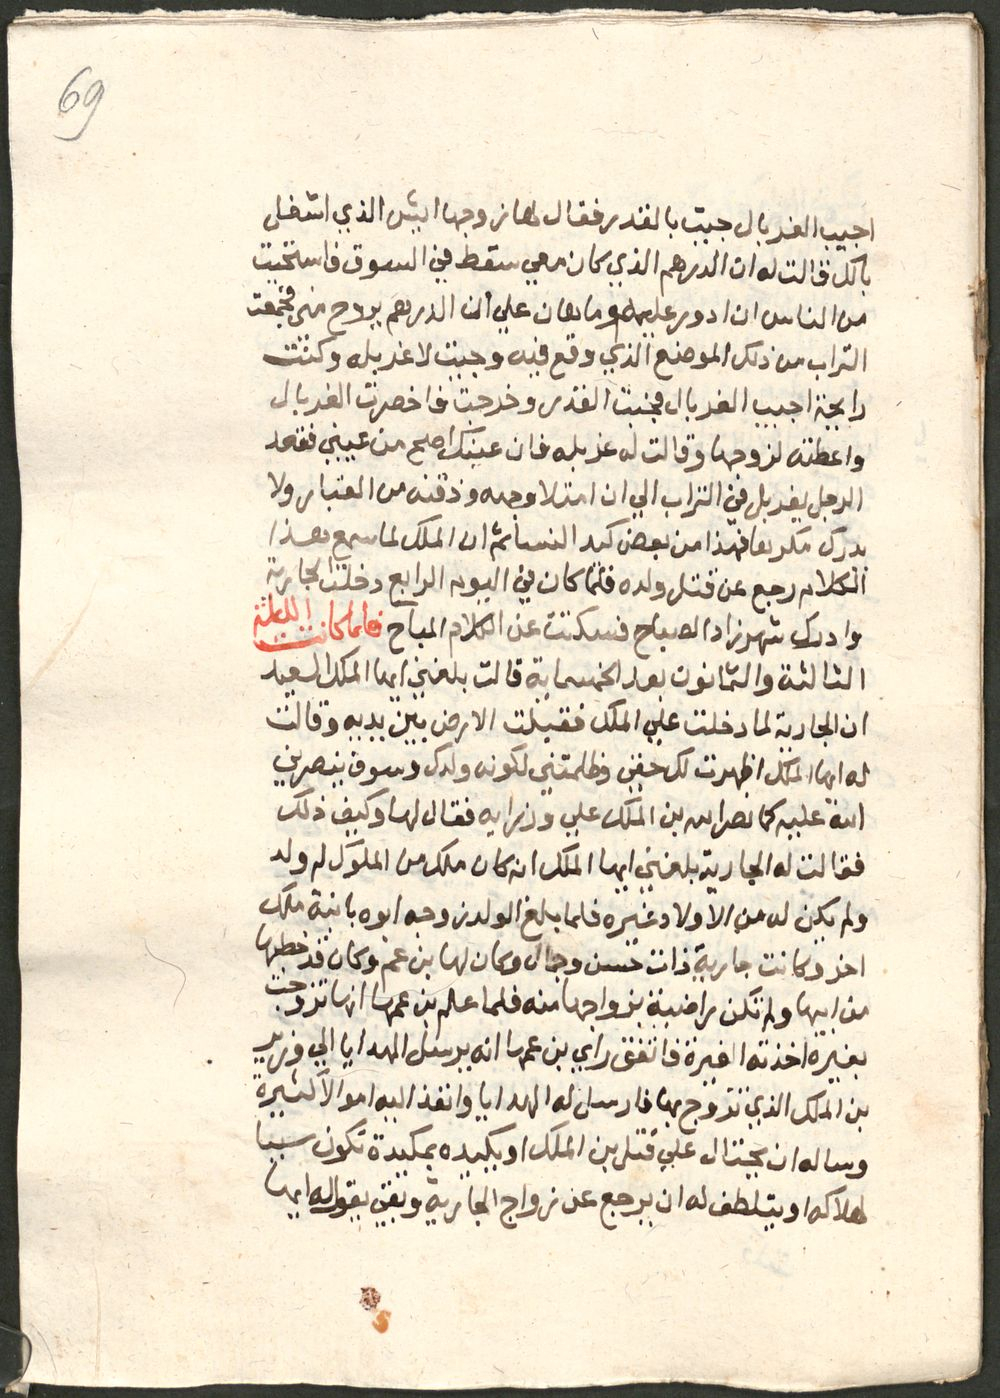 69
اجيب الغربال جيت بالقدر فقال لها زوجها ايش الذي اشغل
بالك قالت له ان الدرهم الذي كان معي سقط في السوق فاستحيت
من الناس ان ادور عليه وما هان علي ان الدرهم يروح مني فجمعت
التراب من ذلك الموضع الذي وقع فيه وجيت لاغربله وكنت
رايحة اجيب الغربال فجبت القدر وخرجت فاحضرت الغربال
واعطته لزوجها وقالت له غربله فان عينك اصلح من عيني فقعد
الرجل يغربل في التراب الي ان امتلا وجهه وذقنه من الغبار ولا
يدرك مكرها فهذا من بعض كيد النسا ثم ان الملك لما سمع هذا
الكلام رجع عن قتل ولده فلما كان في اليوم الرابع دخلت الجارية
وادرك شهرزاد الصباح فسكتت عن الكلام المباح فلما كانت الليلة
الثالثة والثمانون بعد الخمسماية قالت بلغني ايها الملك السعيد
ان الجارية لما دخلت علي الملك فقبلت الارض بين يديه وقالت
له ايها الملك اظهرت لك حقي وظلمتني لكونه ولدك وسوف ينصرني
الله عليه كما نصر الله بن الملك علي وزرايه فقال لها وكيف ذلك
فقالت له الجارية بلغني ايها الملك انه كان ملك من الملوك له ولد
ولم يكن له من الاولاد غيره فلما بلغ الولد زوجه ابوه بابنة ملك
اخر وكانت جارية ذات حسن وجمال وكان لها بن عم وكان قد خطبها
من ابيها ولم تكن راضية بزواجها منه فلما علم بن عمها انها تزوجت
بغيره اخذته الغيرة فاتفق راي بن عمها انه يرسل الهدايا الي وزير
بن الملك الذي تزوج بها فارسل له الهدايا وانفذ اليه اموالا كثيرة
وساله ان يحتال علي قتل بن الملك او يكيده بمكيدة تكون سببا
لهلاكه او يتلطف له ان يرجع عن زواج الجارية وبقي يقول له ايها